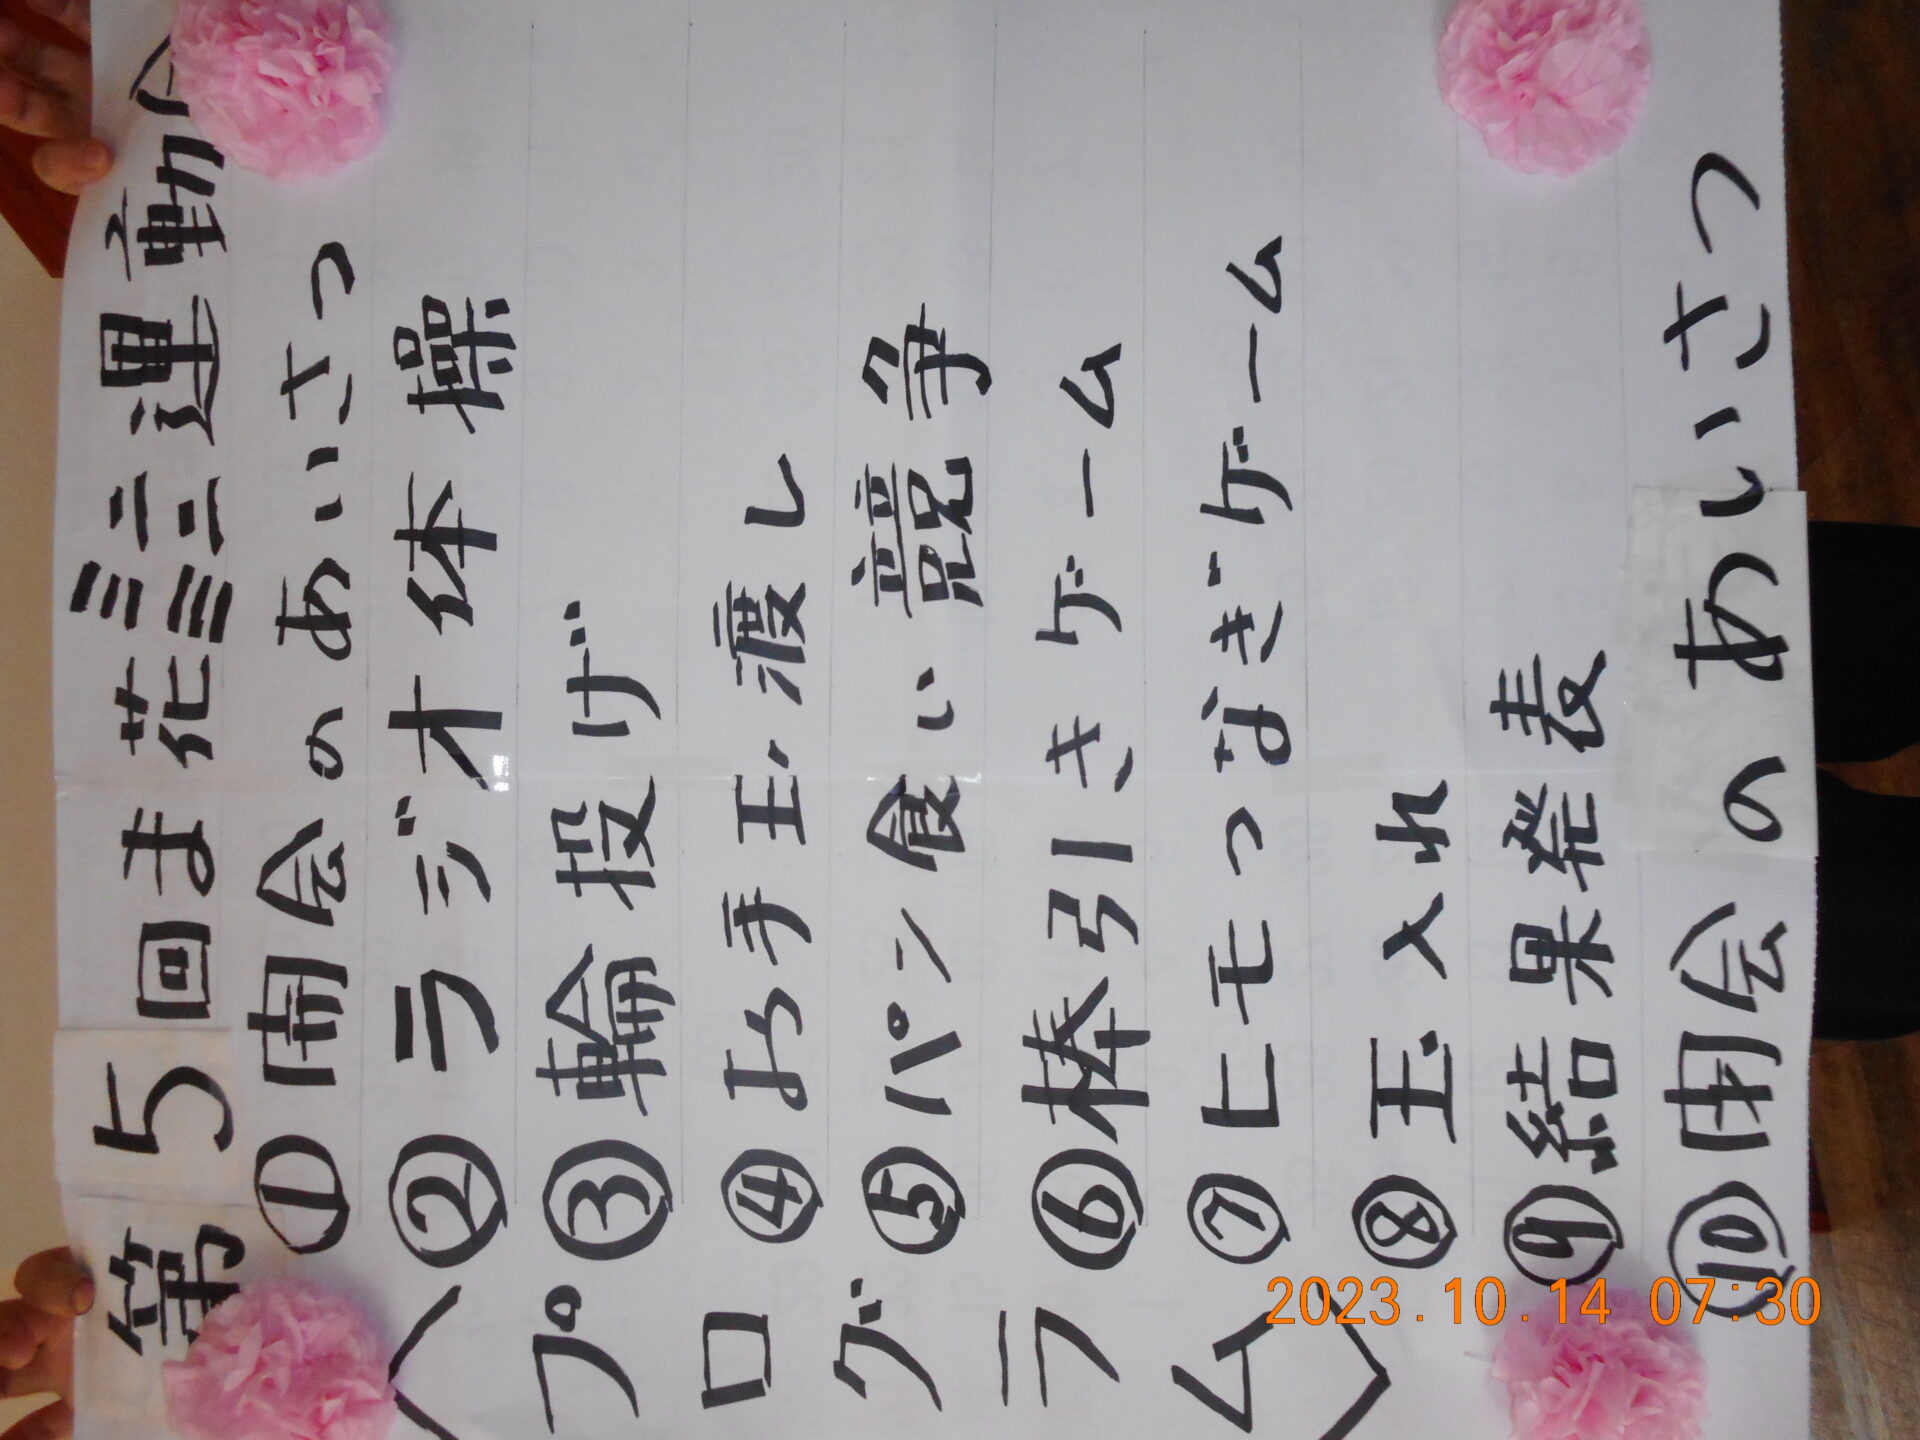 第5回ま花ミニミニ運動会
〈プログラム〉
①開会のあいさつ
②ラジオ体操
③輪投げ
④お手玉渡し
⑤パン食い競争
⑥棒引きゲーム
⑦ヒモつなぎゲーム
⑧玉入れ
⑨結果発表
⑩閉会のあいさつ
2023.10.14 07:30